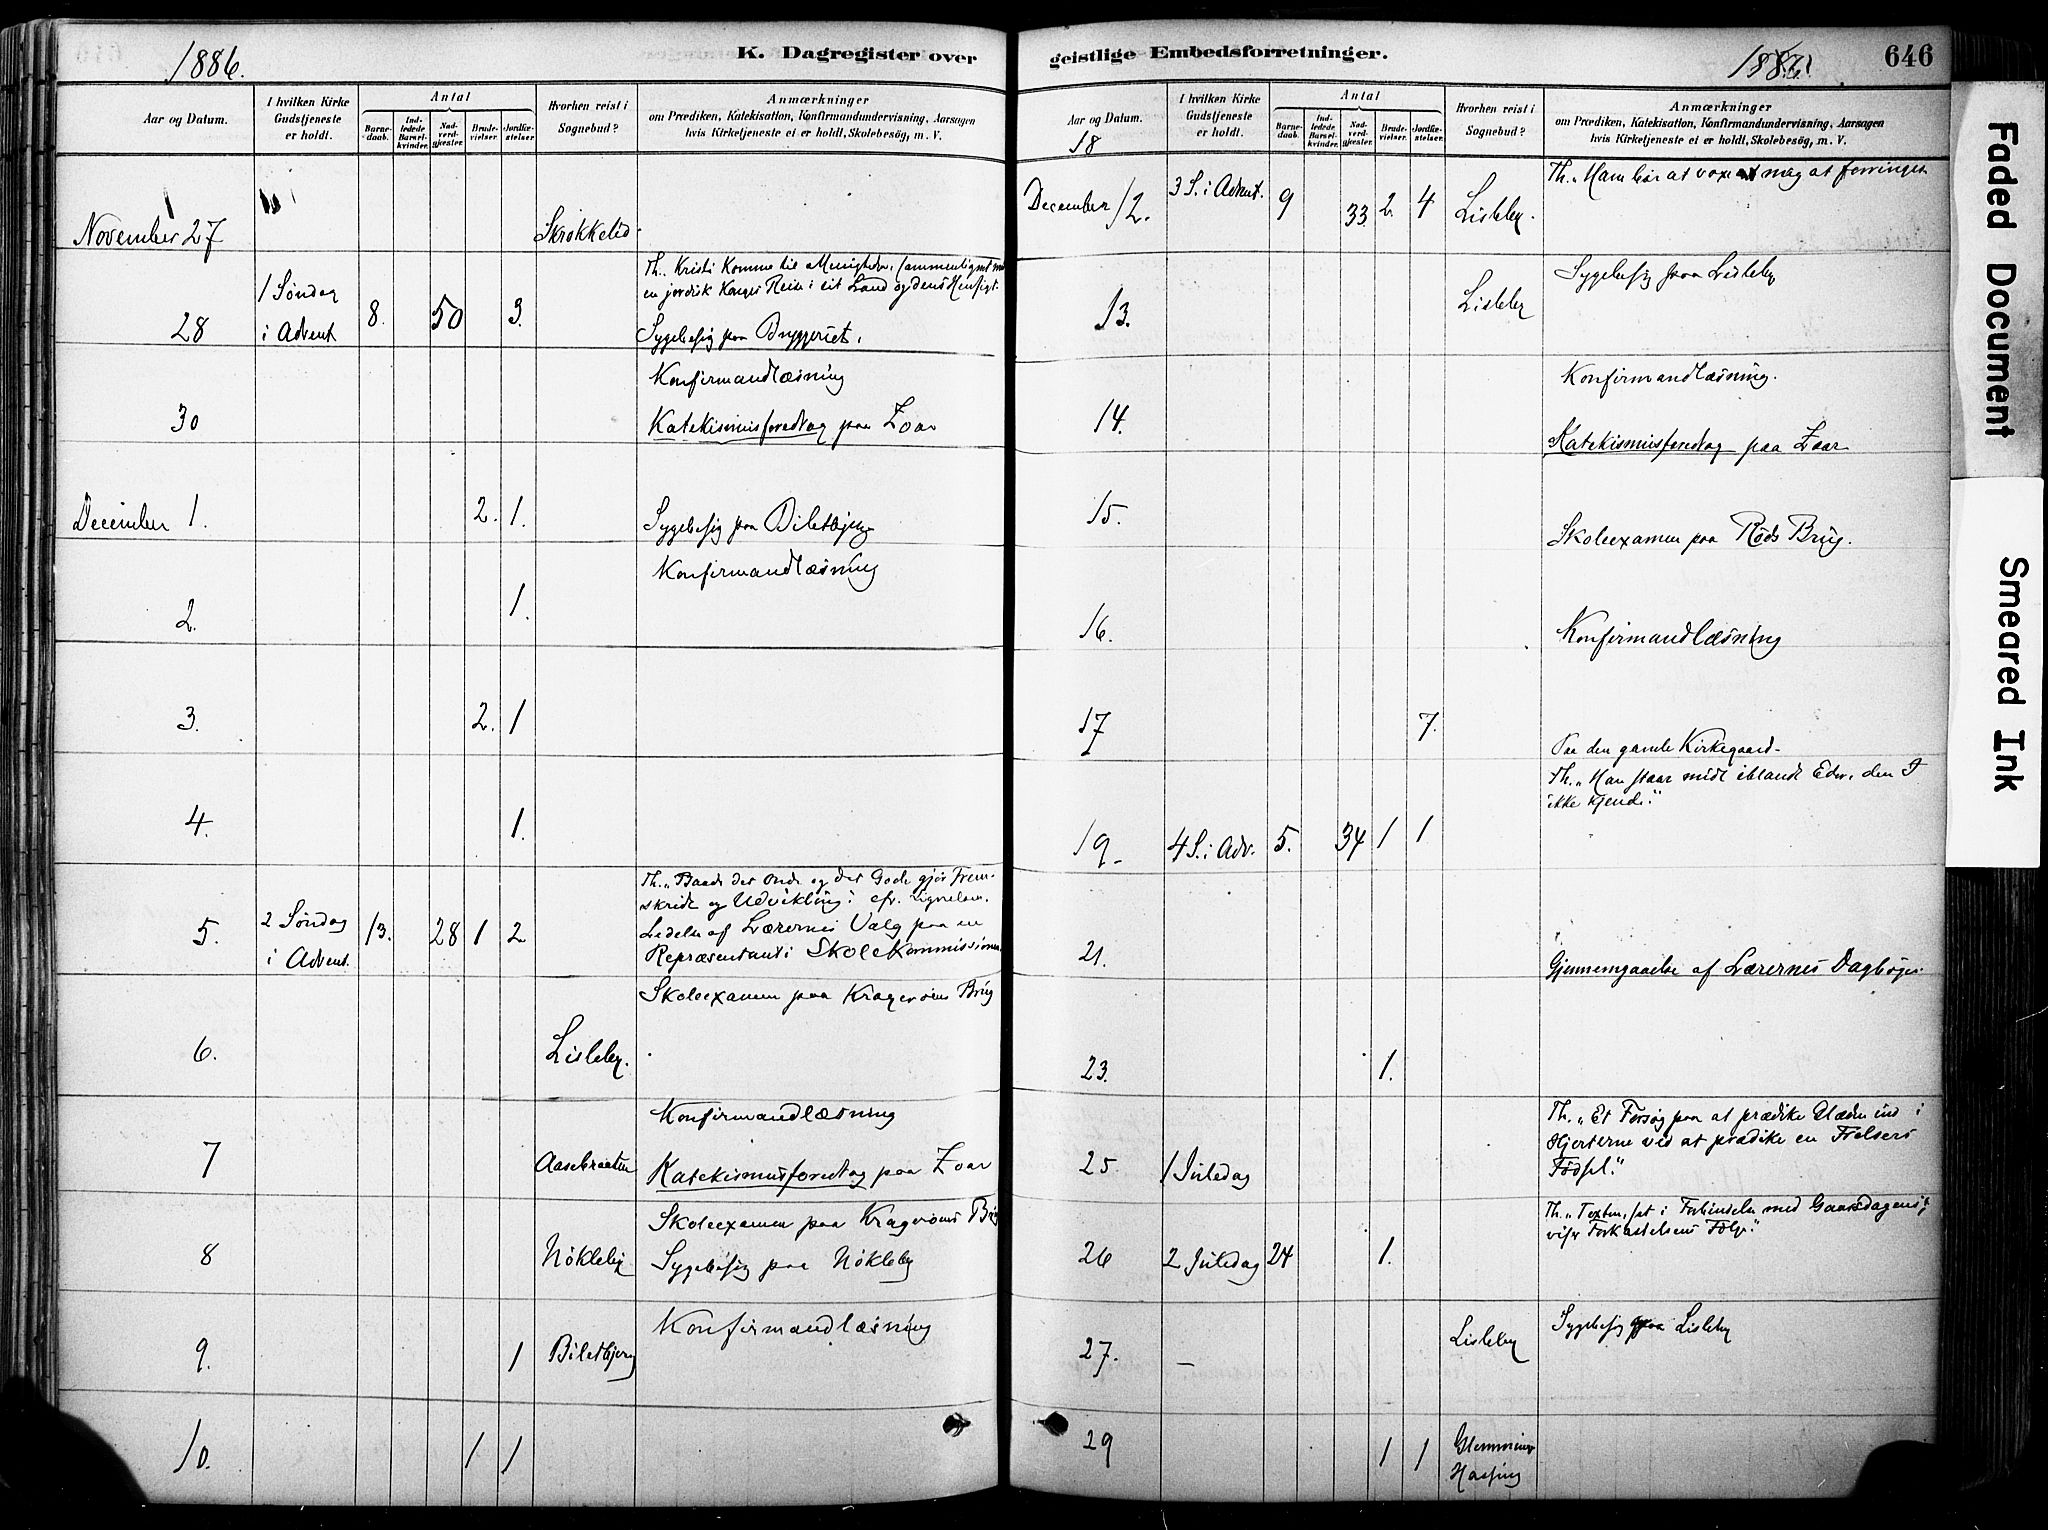 1886.
K. Dagregister over
Aar og Datum.
I hvilken Kirke Gudstjeneste er holdt.
Antal
Barne-daab.
Ind-ledede Barsel-kvinder.
Nad-verd-gjester.
Brude-vielser.
Jordfæ-stelser.
Hvorhen reist i Sognebud?
Anmærkninger
om Prædiken, Katekisation, Konfirmandundervisning, Aarsagen
hvis Kirketjeneste ei er holdt, Skolebesøg, m. V.
November 27 Skrøkkelid.
28 1 Søndag i Advent 8. 50 3.
Th. Kristi Komme til Menigheden, sammenlignet med
en jordisk Konges Reise i sit Land og dens Hensigt.
Sygebesøg paa Bryggeriet.
30 Konfirmandlæsning
Katekismusforedrag paa Zoar
December 1. 2. 1. Sygebesøg paa Biletbjerg
2. 1. Konfirmandlæsning
3. 2. 1
4. 1.
5. 2 Søndag i Advent. 13. 28 1 2
Th. "Baade det Onde og det Gode gjør Frem-
skridt og Udvikling": cfr. Lignelsen.
Ledelse af Lærernes Valg paa en
Repræsentant i Skolekommissionen
6. Lisleby. Skoleexamen paa Kragerøens Brug
7 Aasebraaten Konfirmandlæsning
Katekismusforedrag paa Zoar
8 Nökleby Skoleexamen paa Kragerøens Brug
Sygebesøg paa Nökleby
9. 1 Biletbjerg Konfirmandlæsning
10. 1 1
geistlige Embedsforretninger.
1886.
646
Aar og Datum.
18
I hvilken Kirke Gudstjeneste er holdt.
Antal
Barne-daab.
Ind-ledede Barsel-kvinder.
Nad-verd-gjester.
Brude-vielser.
Jordfæ-stelser.
Hvorhen reist i Sognebud?
Anmærkninger
om Prædiken, Katekisation, Konfirmandundervisning, Aarsagen
hvis Kirketjeneste ei er holdt, Skolebesøg, m. V.
December 12. 3 S. i Advent. 9 33. 2. 4 Lisleby. Th. "Ham bør at voxe mig at forringes
13. Lisleby Sygebesøg paa Lisleby
14. Konfirmandlæsning.
Katekismusforedrag paa Zoar
15. Skoleexamen paa Røds Brug.
16. Konfirmandlæsning
17 7. Paa den gamle Kirkegaard.
19. 4 S. i Adv. 5. 34 1 1
Th. "Han staar midt iblandt Eder, den I
ikke kjende."
21. Gjennemgaaelse af Lærernes Dagbøger.
23. 1.
25. 1 Juledag
Th. "Et Forsøg paa at prædike Glæden ind i
Hjerterne ved at prædike en Frelsers
Fødsel."
26 2 Juledag 24 1.
Th. "Texten, set i Forbindelse med Gaarsdagens,
viser Forkastelsens Følge."
27. – Lisleby Sygebesøg paa Lisleby
29 1 1 Glemminge
Faded Document
Smeared Ink